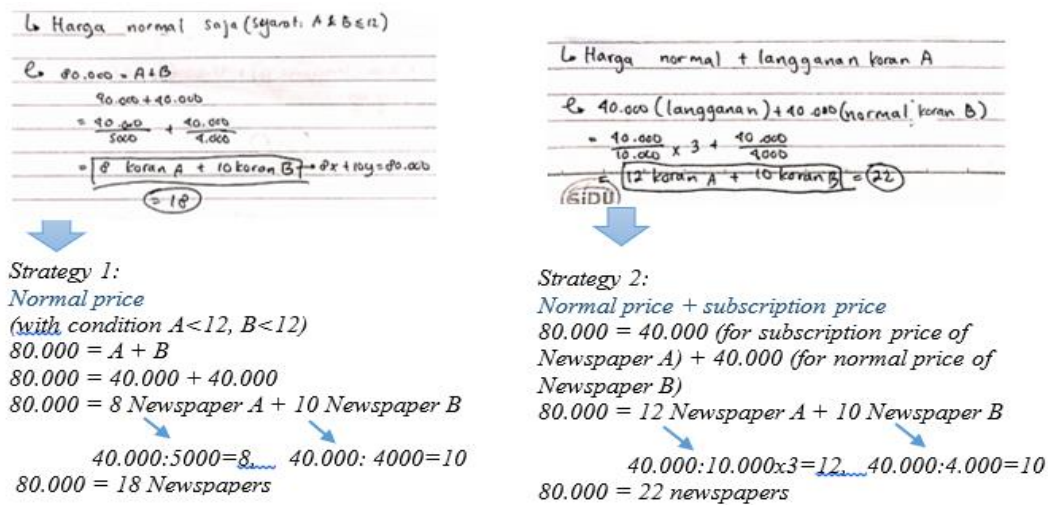 ↳ Harga normal saja (syarat: A & B ≤ 12)
80.000 = A + B
40.000 + 40.000
= 40.000/5000 + 40.000/4.000
= 8 koran A + 10 koran B → 8x + 10y = 80.000
= 18
Strategy 1:
Normal price
(with condition A<12, B<12)
80.000 = A + B
80.000 = 40.000 + 40.000
80.000 = 8 Newspaper A + 10 Newspaper B
40.000:5000=8, 40.000: 4000=10
80.000 = 18 Newspapers
↳ Harga normal + langganan koran A
40.000 (langganan) + 40.000 (normal koran B)
= 40.000/10.000 x 3 + 40.000/4000
= 12 koran A + 10 koran B = 22
SiDU
Strategy 2:
Normal price + subscription price
80.000 = 40.000 (for subscription price of
Newspaper A) + 40.000 (for normal price of
Newspaper B)
80.000 = 12 Newspaper A + 10 Newspaper B
40.000:10.000x3=12, 40.000:4.000=10
80.000 = 22 newspapers